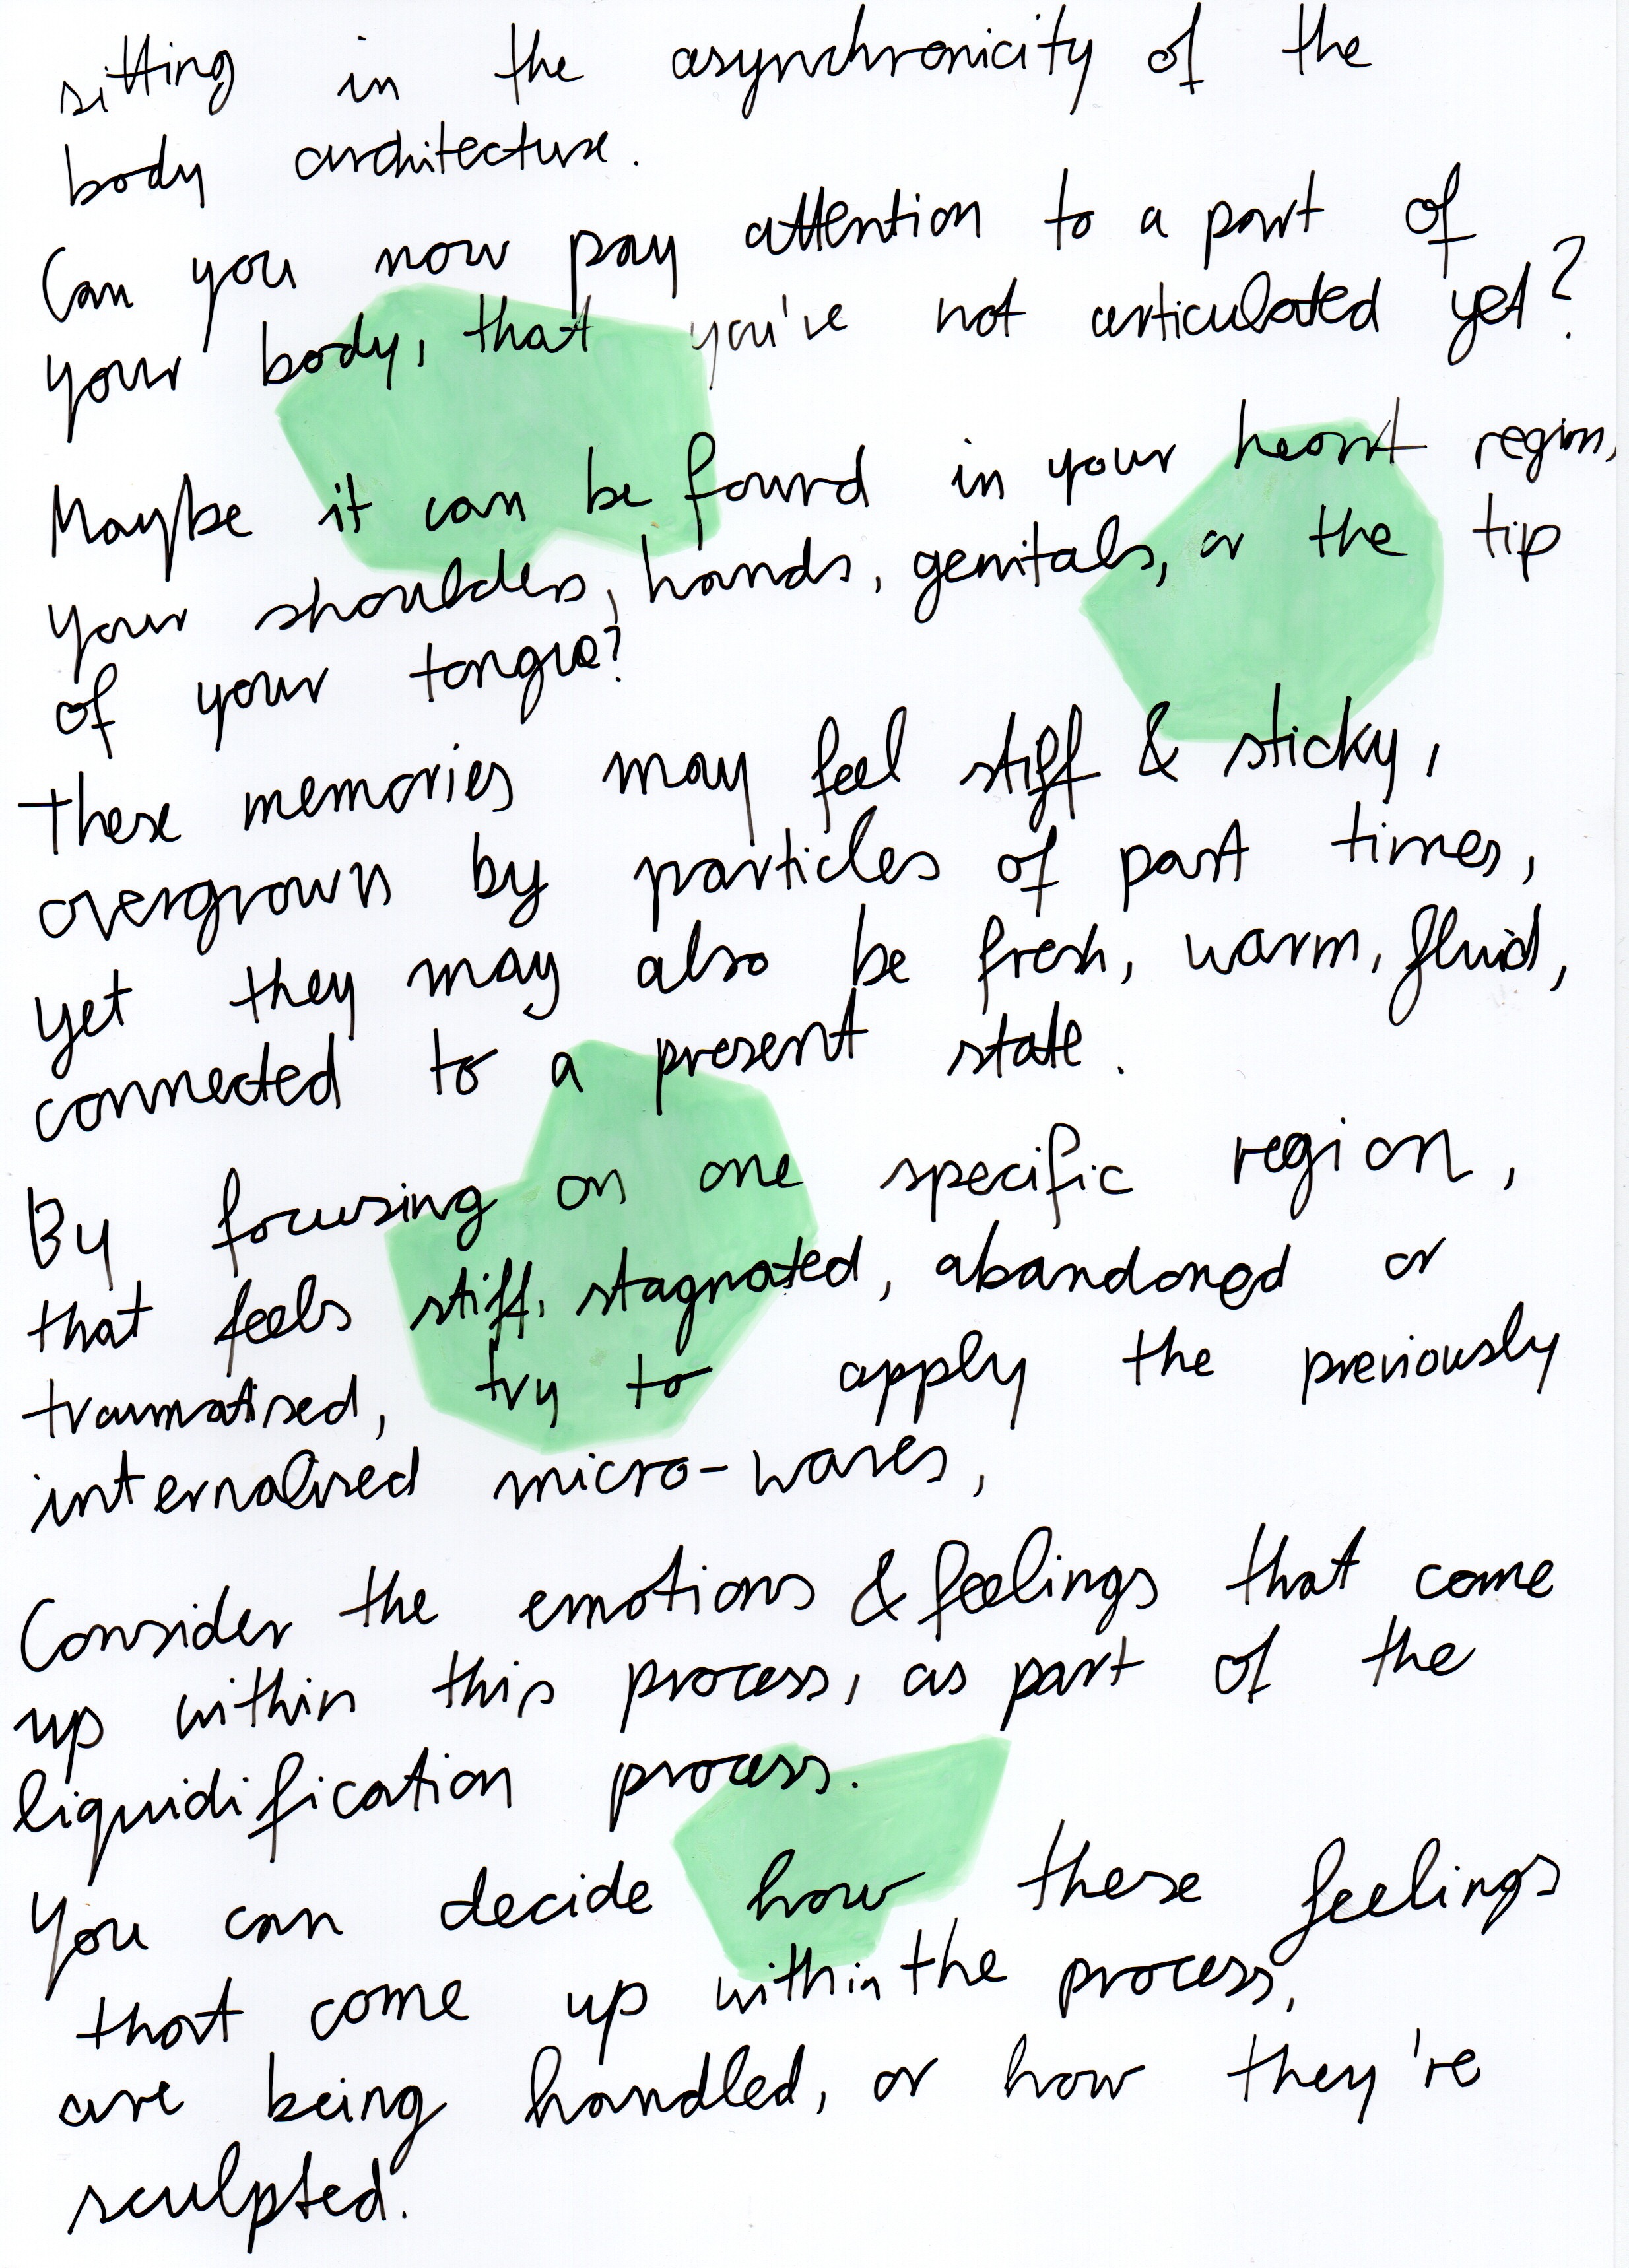 sitting in the asynchronicity of the
body architecture.
Can you now pay attention to a part of
your body, that you've not articulated yet?
Maybe it can be found in your heart region,
your shoulders, hands, genitals, or the tip
of your tongue?
These memories may feel stiff & sticky,
overgrown by particles of past times,
yet they may also be fresh, warm, fluid,
connected to a present state.
By focusing on one specific region,
that feels stiff, stagnated, abandoned or
traumatised, try to apply the previously
internalised micro-waves,
Consider the emotions & feelings that come
up within this process, as part of the
liquidification process.
You can decide how these feelings
that come up within the process,
are being handled, or how they're
sculpted.